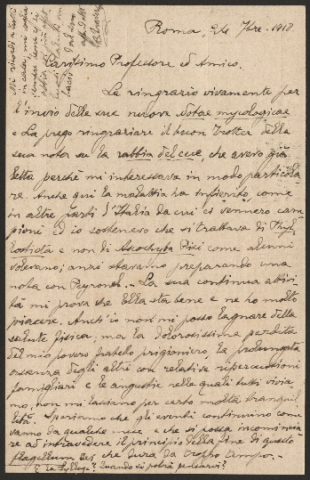 Roma, 24 7bre. 1918
Carissimo Professore ed Amico,
Le ringrazio vivamente per
l'invio delle sue nuove Notae mycologicae
e La prego ringraziare il buon Trotter della
sua nota su la rabbia del cece, che avevo già
letta perché mi interessava in modo particola
re. Anche qui la malattia ha infierito come
in altre parti d'Italia da cui ci vennero cam
pioni ed io sostenevo che si trattava di Phyl
losticta e non di Ascochyta Pisi come alcuni
volevano; anzi stavamo preparando una
nota con Peyronel. - La sua continua attivi
tà mi prova che Ella sta bene e ne ho molto
piacere. Anch'io non mi posso lagnare della
salute fisica, ma la dolorosissima perdita
del mio povero fratello prigioniero, la prolungata
assenza degli altri con relative ripercussioni
famigliari e le angustie nelle quali tutti vivia
mo, non mi lasciano per certo molta tranquil
lità. Speriamo che gli eventi continuino come
vanno da qualche mese e che si possa incomincia
re ad intravedere il principio della fine di questo
flagellum Dei che dura da troppo tempo. -
E la Sylloge? Quando si potrà pensarvi?
Mi ricordi a tutti
in casa, mi voglia
sempre bene e si